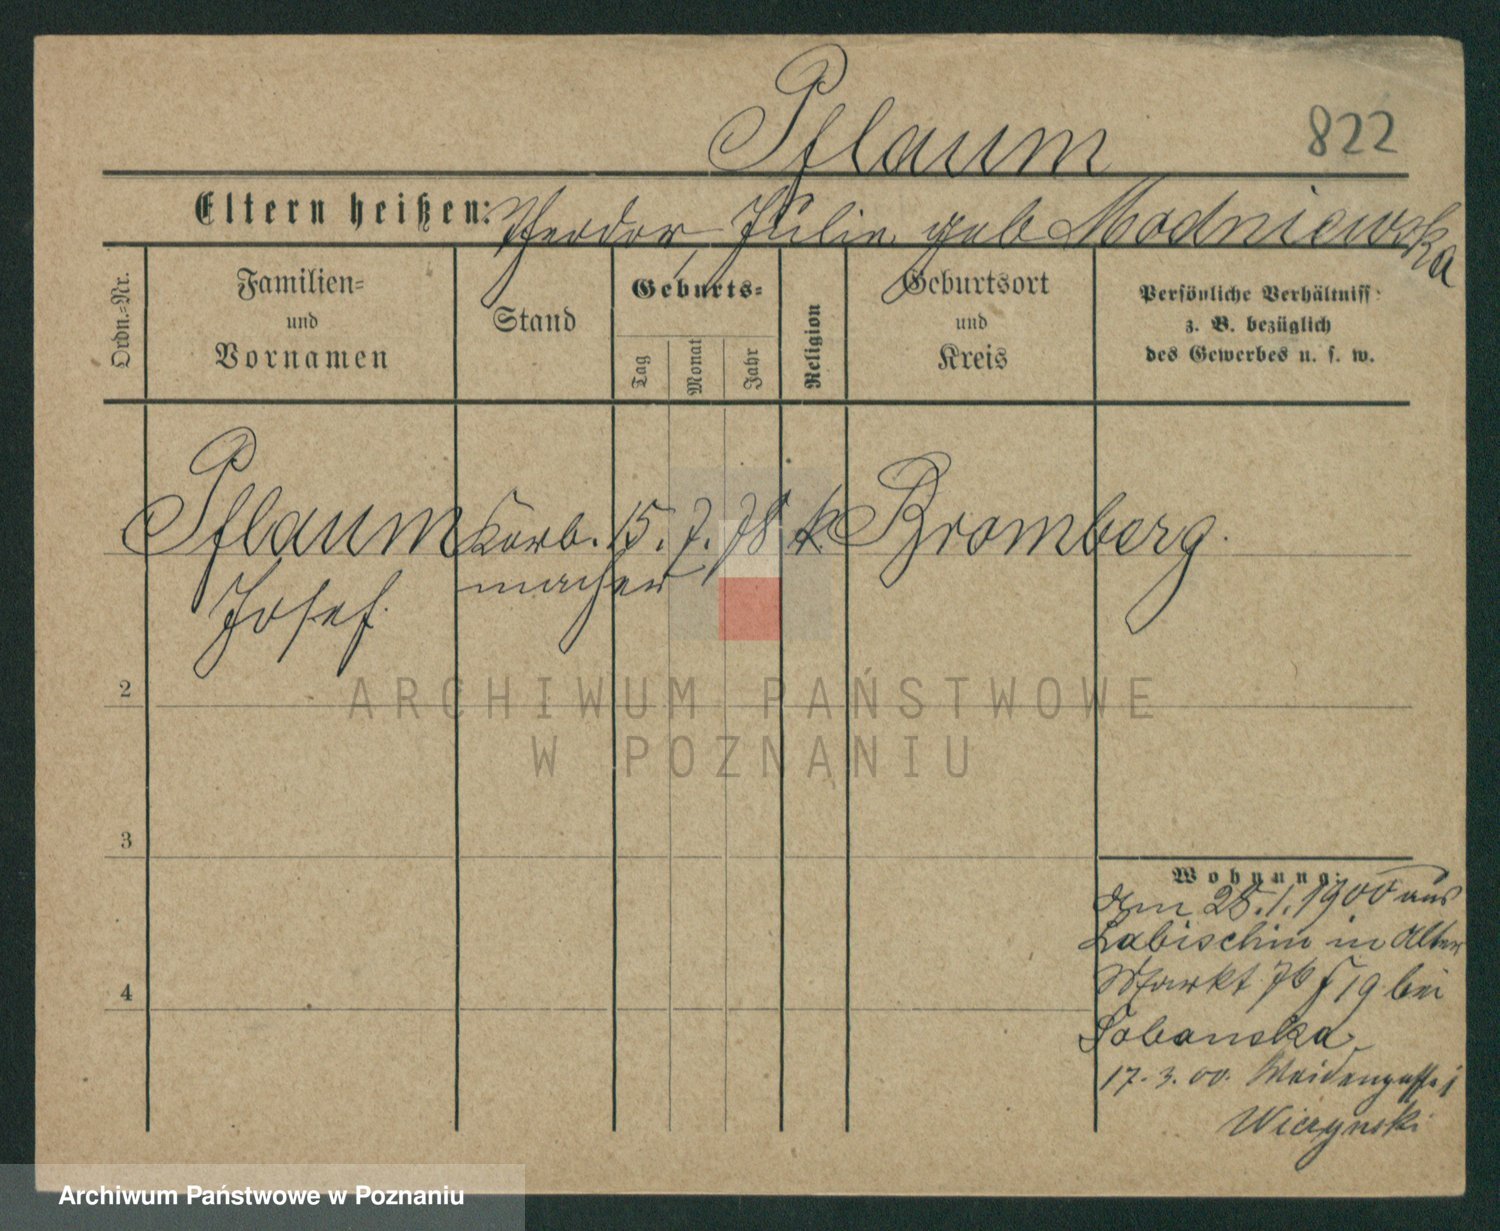 Pflaum 822
Eltern heißen: Theodor, Julie geb Modniewska
Ordn.-Nr.
Familien=
und
Vornamen
Stand
Geburts=
Tag
Monat
Jahr
Religion
Geburtsort
und
Kreis
Persönliche Verhältniss
z. B. bezüglich
des Gewerbes u. s. w.
Pflaum Korb. 15. 7. 78 k Bromberg.
Josef. macher
2
3
4
Wohnung:
Am 25.1.1900 aus
Labischin in Alter
Markt 76 19 bei
Sobanska
17. 3. 00. Weidengasse 1
Wiczynski
ARCHIWUM PAŃSTWOWE
W POZNANIU
Archiwum Państwowe w Poznaniu